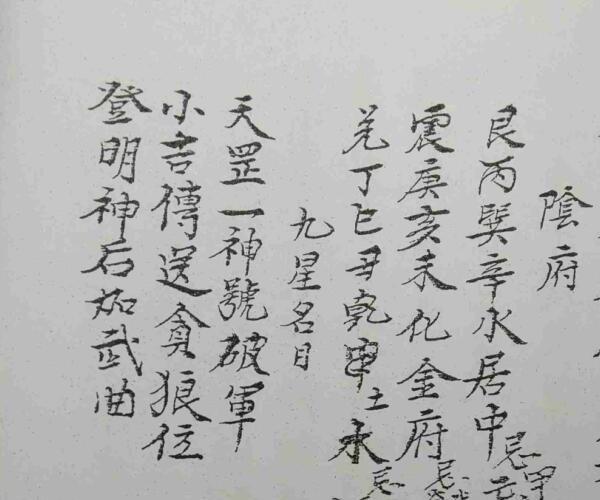 陰府
艮丙巽辛水居中忌甲
震庚亥未化金府忌
兌丁巳丑乾甲土水忌
九星名目
天罡一神號破軍
小吉傳送貪狼位
登明神后如武曲